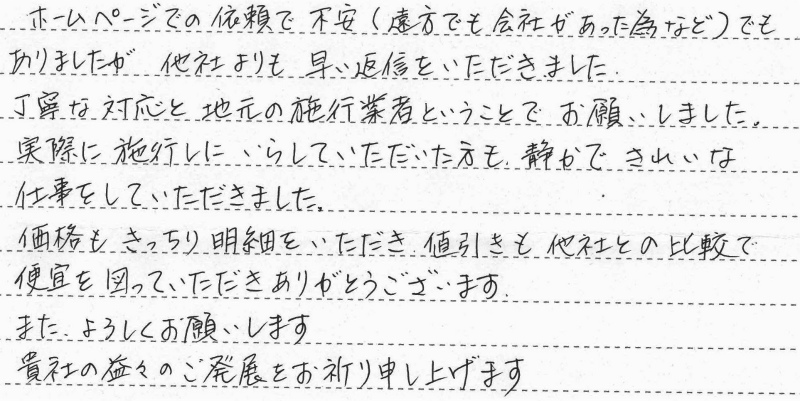 ホームページでの依頼で不安(遠方でも会社があった為など)でも
ありましたが 他社よりも 早い返信をいただきました.
丁寧な対応と地元の施行業者ということで お願いしました。
実際に施行しに いらしていただいた方も、静かで きれいな
仕事をしていただきました。
価格も きっちり 明細をいただき、値引きも 他社との比較で
便宜を図っていただきありがとうございます.
また、よろしくお願いします
貴社の益々のご発展をお祈り申し上げます